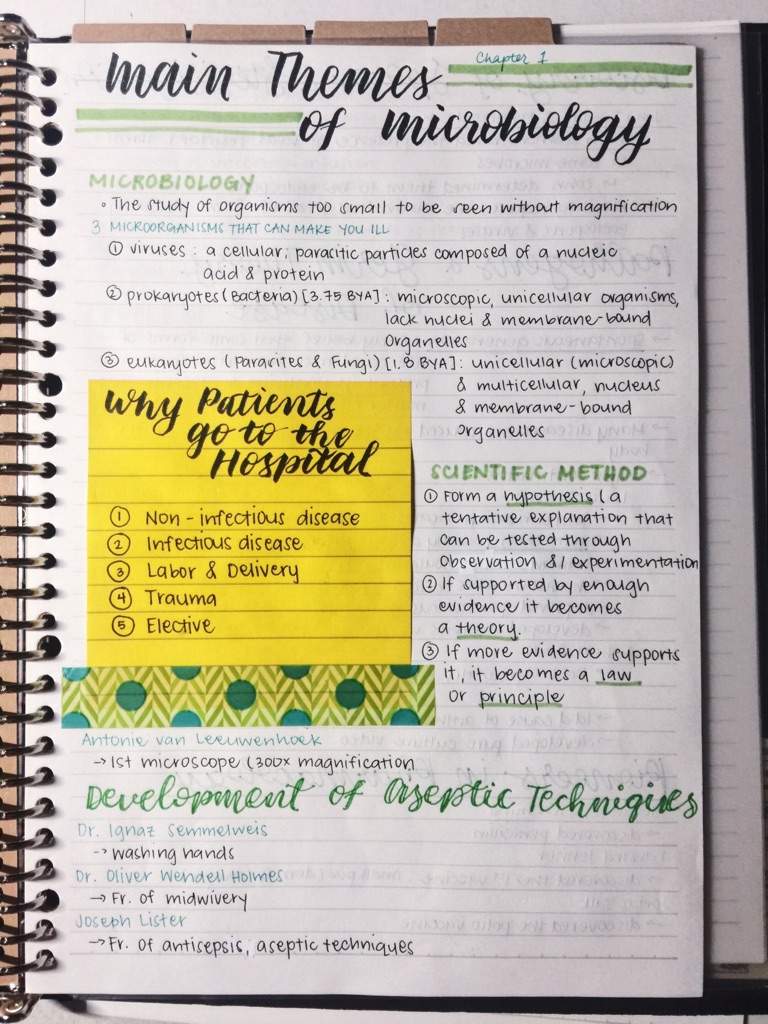 Chapter 1
Main Themes
of microbiology
MICROBIOLOGY
• The study of organisms too small to be seen without magnification
3 MICROORGANISMS THAT CAN MAKE YOU ILL
① viruses : a cellular, parasitic particles composed of a nucleic
acid & protein
② prokaryotes (Bacteria) [3.75 BYA] : microscopic, unicellular organisms,
lack nuclei & membrane-bound
organelles
③ eukaryotes (Paracites & Fungi) [1.8 BYA] : unicellular (microscopic)
& multicellular, nucleus
& membrane-bound
organelles
Why Patients
go to the
Hospital
① Non-infectious disease
② Infectious disease
③ Labor & Delivery
④ Trauma
⑤ Elective
SCIENTIFIC METHOD
① Form a hypothesis (a
tentative explanation that
can be tested through
observation &/ experimentation
② If supported by enough
evidence it becomes
a theory.
③ If more evidence supports
it, it becomes a law
or principle
Antonie van Leeuwenhoek
→ 1st microscope (300x magnification
Development of Aseptic Techniques
Dr. Ignaz Semmelweis
→ washing hands
Dr. Oliver Wendell Holmes
→ Fr. of midwivery
Joseph Lister
→ Fr. of antisepsis, aseptic techniques